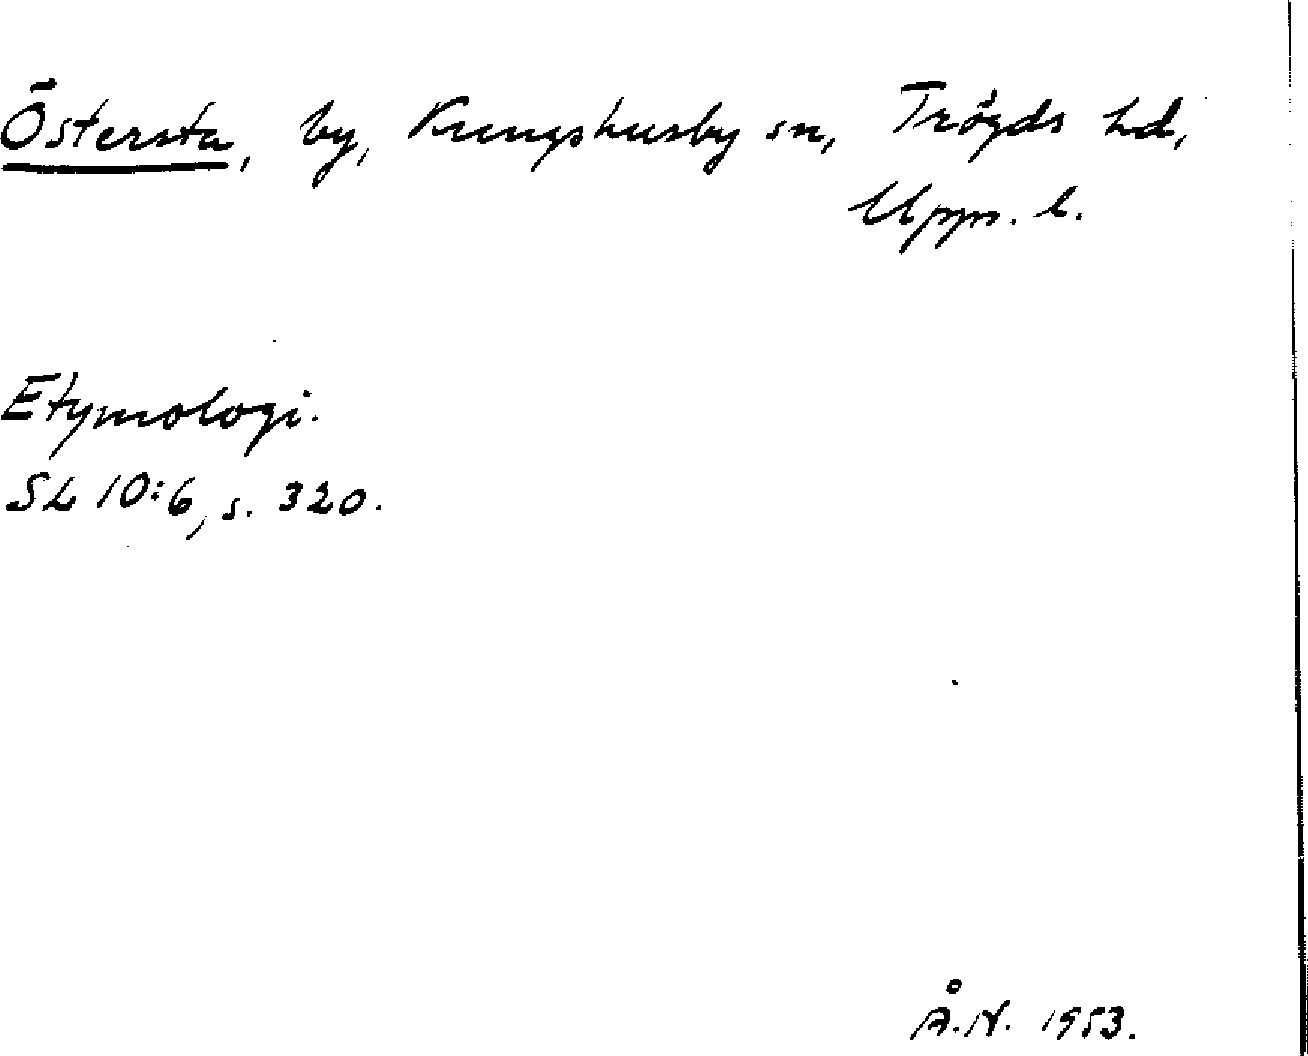 Östersta, by, Kungshusby sn, Trögds hd,
Upps. l.
Etymologi.
SL 10:6, s. 320.
Å.N. 1953.